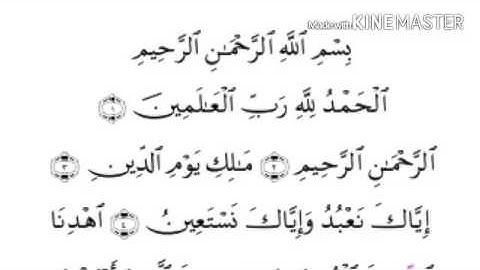 Made with KINEMASTER
بِسْمِ اللَّهِ الرَّحْمَٰنِ الرَّحِيمِ
الْحَمْدُ لِلَّهِ رَبِّ الْعَالَمِينَ ۝١
الرَّحْمَٰنِ الرَّحِيمِ ۝٢ مَالِكِ يَوْمِ الدِّينِ ۝٣
إِيَّاكَ نَعْبُدُ وَإِيَّاكَ نَسْتَعِينُ ۝٤ اهْدِنَا